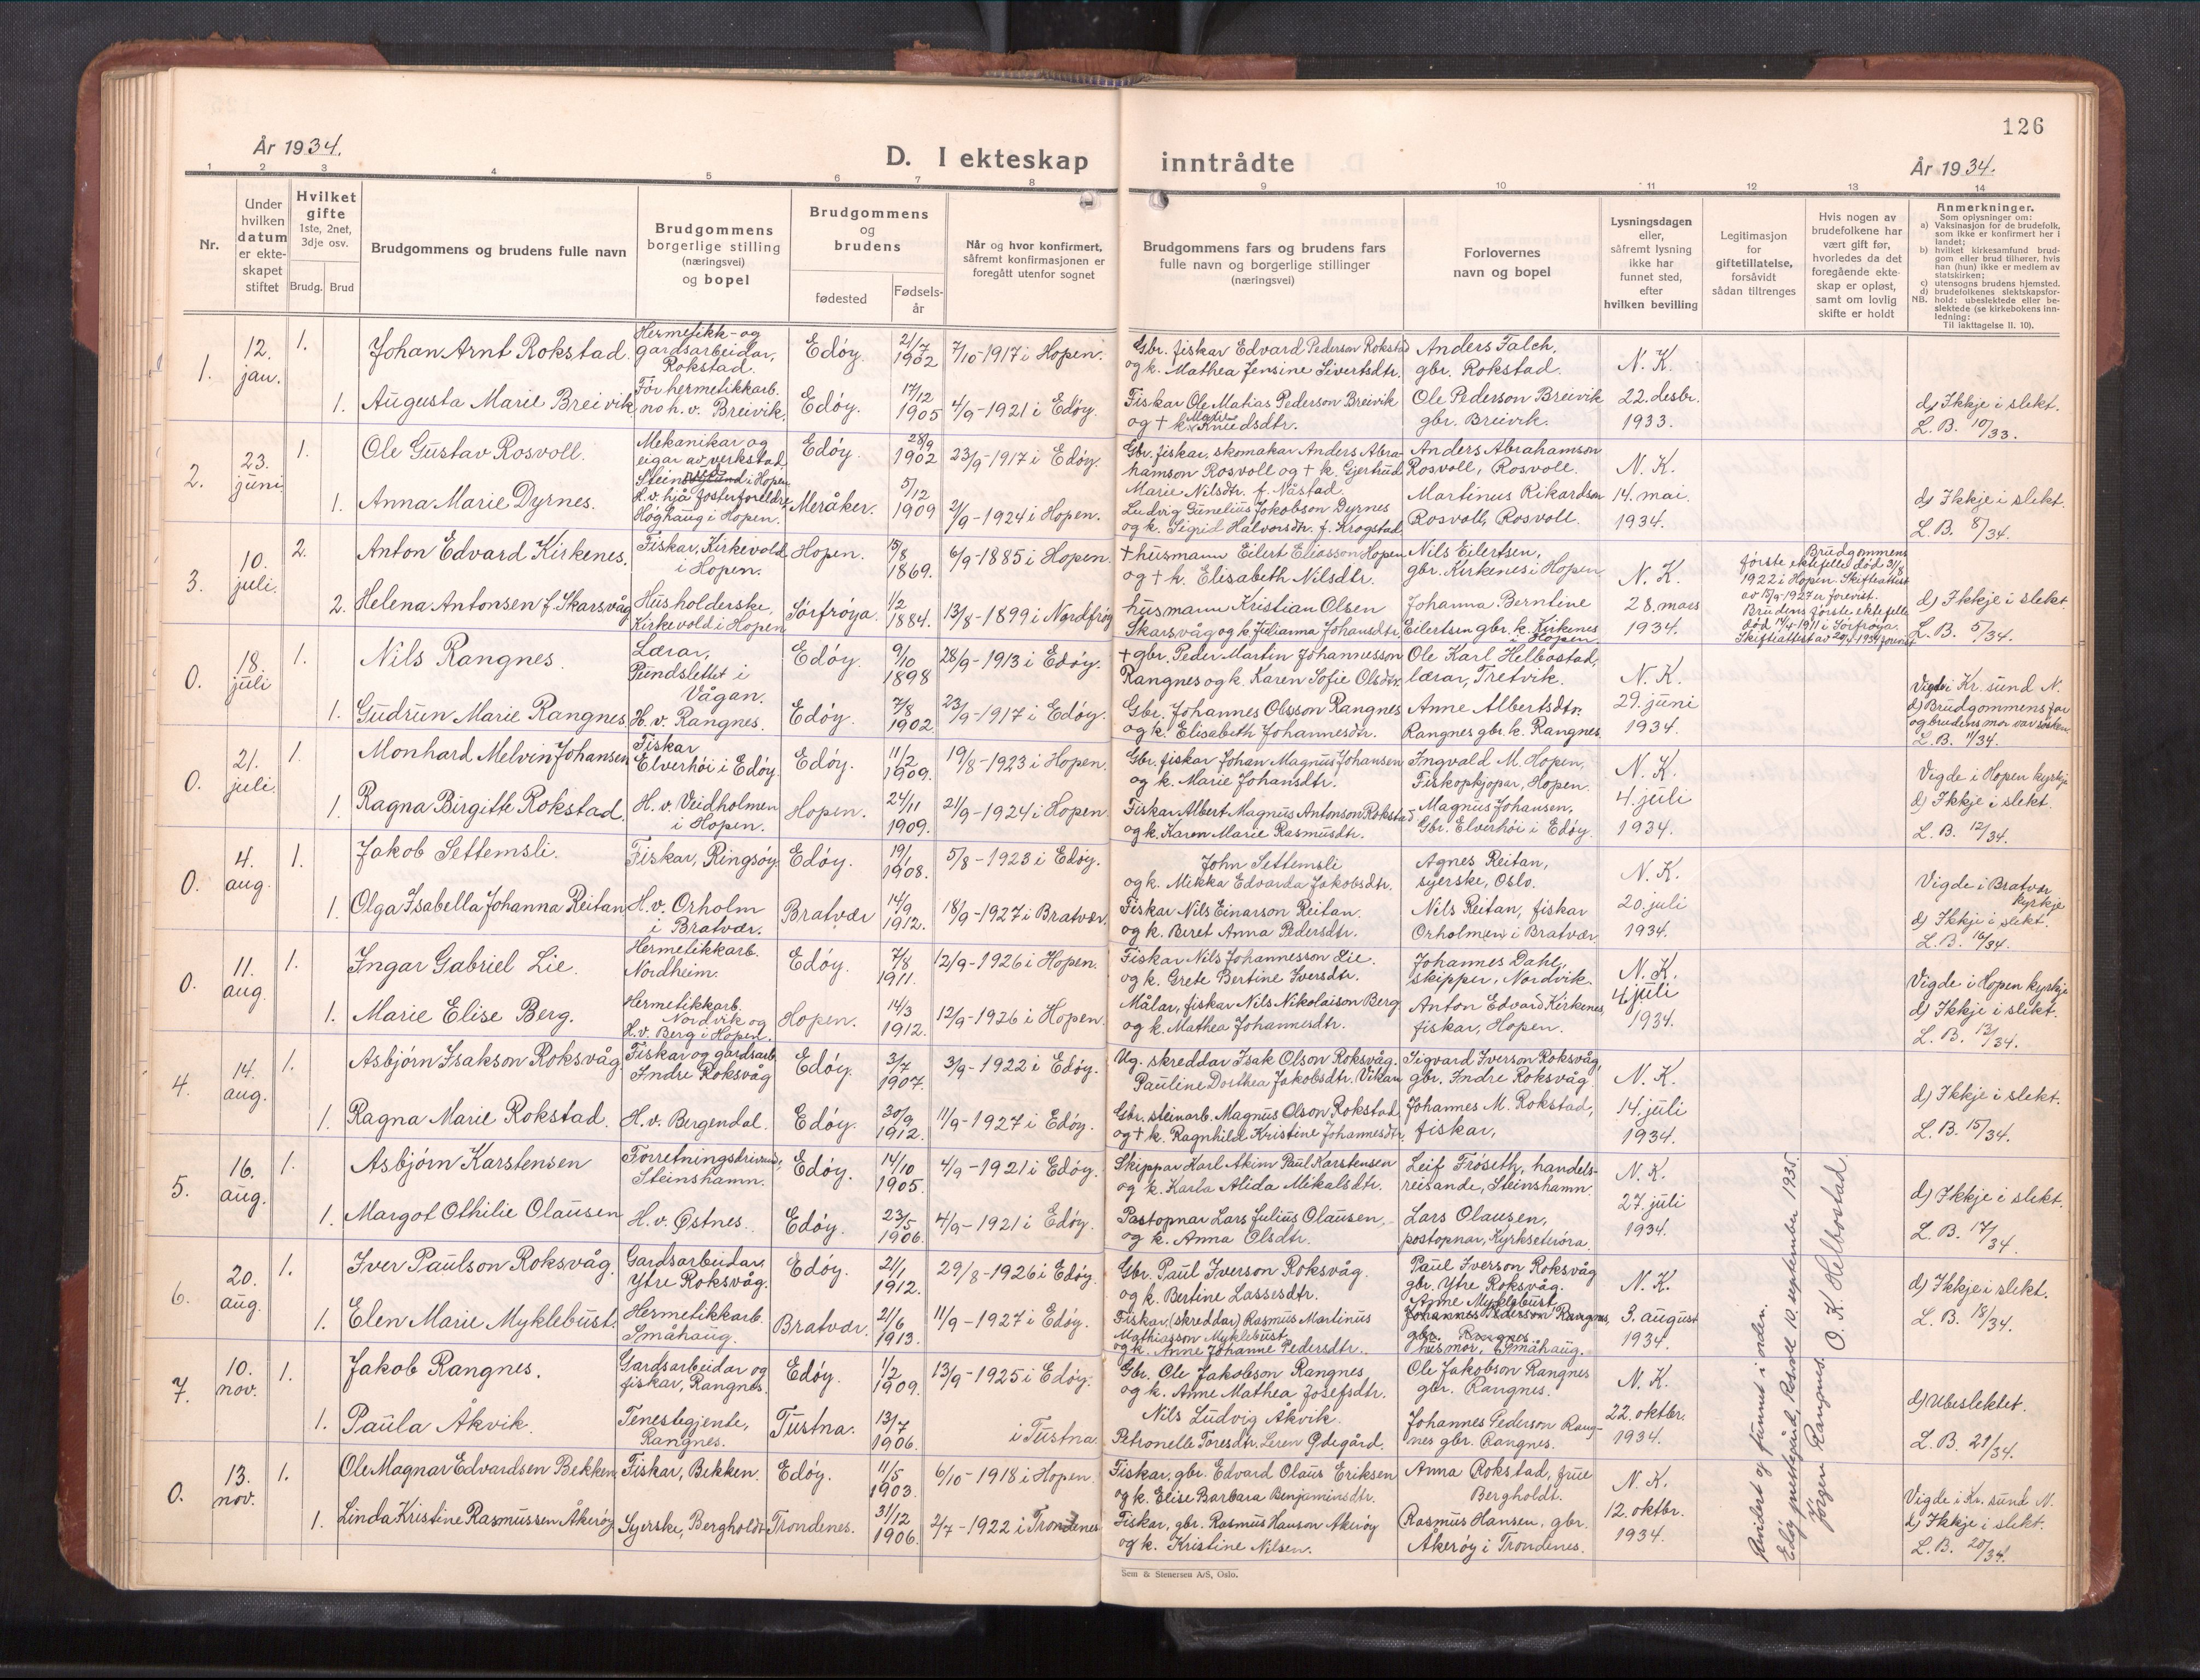 126
År 1934.
D. I ekteskap inntrådte
År 1934.
1 2 3 4 5 6 7 8 9 10 11 12 13 14
Nr.
Under hvilken datum er ekte-skapet stiftet
Hvilket gifte 1ste, 2net, 3dje osv.
Brudg. Brud
Brudgommens og brudens fulle navn
Brudgommens borgerlige stilling (næringsvei) og bopel
Brudgommens og brudens
fødested
Fødsels-år
Når og hvor konfirmert, såfremt konfirmasjonen er foregått utenfor sognet
Brudgommens fars og brudens fars fulle navn og borgerlige stillinger (næringsvei)
Forlovernes navn og bopel
Lysningsdagen eller, såfremt lysning ikke har funnet sted, efter hvilken bevilling
Legitimasjon for giftetillatelse, forsåvidt sådan tiltrenges
Hvis nogen av brudefolkene har vært gift før, hvorledes da det foregående ekte-skap er opløst, samt om lovlig skifte er holdt
Anmerkninger.
Som oplysninger om:
a) Vaksinasjon for de brudefolk, som ikke er konfirmert her i landet;
b) hvilket kirkesamfund brud-gom eller brud tilhører, hvis han (hun) ikke er medlem av statskirken;
c) utensogns brudens hjemsted.
d) brudefolkenes slektskapsfor-
NB. hold: ubeslektede eller be-slektede (se kirkebokens inn-ledning: Til iakttagelse II. 10).
1. 12. jan. 1. Johan Arnt Rokstad. Hermetikk- og gardsarbeidar, Rokstad. Edøy. 21/7 1902 7/10-1917 i Hopen. Gbr. fiskar Edvard Pederson Rokstad og k. Mathea Jensine Sivertsdtr. Anders Falch, gbr. Rokstad. N. K.
1. Augusta Marie Breivik, Før hermetikkarb. no h. v. Breivik. Edøy. 17/12 1905 4/9-1921 i Edøy. Fiskar Ole Matias Pederson Breivik og + k. Knudsdtr. Ole Pederson Breivik gbr. Breivik. 22. desbr. 1933. d) Ikkje i slekt. L. B. 10/33.
2. 23. juni 1. Ole Gustav Rosvoll. Mekanikar og eigar av verkstad, i Hopen Edøy. 28/9 1902 23/9-1917 i Edøy. Gbr. fiskar, skomakar Anders Abra-hamson Rosvoll og + k. Gjertrud Marie Nilsdtr. f. Nåstad. Anders Abrahamson Rosvoll, Rosvoll. N. K.
1. Anna Marie Dyrnes. H. v. hjå fosterforeldre Høghaug i Hopen. Meråker. 5/12 1909 21/9-1924 i Hopen. Ludvig Gunelius Jakobson Dyrnes og k. Sigrid Halvorsdtr. f. Krogstad Martinus Rikardsen Rosvoll, Rosvoll. 14. mai. 1934. d) Ikkje i slekt. L. B. 8/34.
3. 10. juli. 2. Anton Edvard Kirkenes. Fiskar, Kirkevold i Hopen. Hopen. 15/8 1869. 6/9-1885 i Hopen. + husmann Eilert Eliasson Hopen og + k. Elisabeth Nilsdtr. Nils Eilertsen, gbr. Kirkenes i Hopen N. K. Brudgommens første ektefelle død 31/8 1922 i Hopen. Skifteattest av 15/9-1927 er forevist.
2. Helena Antonsen f. Skarsvåg Husholderske, Kirkevold i Hopen Sørfrøya. 1/2 1884. 13/8-1899 i Nordfrøy husmann Kristian Olsen Skarsvåg og k. Julianna Johansdtr. Johanna Berntine Eilertsen gbr. k. Kirkenes i Hopen. 28. mars 1934. Brudens første ektefelle død 14/4-1911 i Sørfrøya. Skifteattest av 20/4-1934 forevist d) Ikkje i slekt. L. B. 5/34.
0. 18. juli 1. Nils Rangnes. Lærar, Pundslettet i Vågan. Edøy. 9/10 1898 28/9-1913 i Edøy. + gbr. Peder Martin Johannesson Rangnes og k. Karen Sofie Olsdtr. Ole Karl Helbostad, lærar, Tretvik. N. K.
1. Gudrun Marie Rangnes H. v. Rangnes. Edøy. 7/8 1902. 23/9-1917 i Edøy. Gbr. Johannes Olsson Rangnes og k. Elisabeth Johannesdtr. Anne Albertsdtr. Rangnes gbr. k. Rangnes. 29. juni 1934. Vigde i Kr. sund N. d) Brudgommens far og brudens mor var sysken L. B. 11/34.
0. 21. juli. 1. Monhard Melvin Johansen Fiskar Elverhøi i Edøy. Edøy. 11/2 1909. 19/8-1923 i Hopen. Gbr. fiskar Johan Magnus Johansen og k. Marie Johansdtr. Ingvald M. Hopen, Fiskopkjøpar, Hopen. N. K.
1. Ragna Birgitte Rokstad. H. v. Veidholmen i Hopen. Hopen. 24/11 1909. 21/9-1924 i Hopen. Fiskar Albert Magnus Antonson Rokstad og k. Karen Marie Rasmusdtr. Magnus Johansen, Gbr. Elverhøi i Edøy. 4. juli 1934. Vigde i Hopen kyrkje d) Ikkje i slekt. L. B. 12/34.
0. 4. aug. 1. Jakob Settemsli. Fiskar, Ringsøy. Edøy. 19/1 1908. 5/8-1923 i Edøy. John Settemsli og k. Mikka Edvarda Jakobsdtr. Agnes Reitan, syerske, Oslo. N. K.
1. Olga Isabella Johanna Reitan H. v. Orholm i Bratvær. Bratvær 14/9 1912. 18/9-1927 i Bratvær. Fiskar Nils Einarson Reitan. og k. Beret Anna Pedersdtr. Nils Reitan, fiskar Orholmen i Bratvær 20. juli 1934. Vigde i Bratvær kyrkje d) Ikkje i slekt. L. B. 16/34.
0. 11. aug. 1. Ingar Gabriel Lie. Hermetikkarb. Nordheim. Edøy. 7/8 1911. 12/9-1926 i Hopen. Fiskar Nils Johannesson Lie. og k. Grete Bertine Iversdtr. Johannes Dahl, skipper, Nordvik. N. K.
1. Marie Elise Berg. Hermetikkarb. Nordvik og H. v. Berg i Hopen. Hopen. 14/3 1912. 12/9-1926 i Hopen. Målar, fiskar Nils Nikolaison Berg og k. Mathea Johannesdtr. Anton Edvard Kirkenes, fiskar, Hopen. 4 juli 1934. Vigde i Hopen kyrkje d) Ikkje i slekt. L. B. 13/34.
4. 14. aug. 1. Asbjørn Isakson Roksvåg Fiskar og gardsarb. Indre Roksvåg Edøy. 3/7 1907. 3/9-1922 i Edøy. Ug. skreddar Isak Olson Roksvåg. Pauline Dorthea Jakobsdtr. Vikan Sigvard Iverson Roksvåg, gbr. Indre Roksvåg. N. K.
1. Ragna Marie Rokstad. H. v. Bergendal. Edøy. 30/9 1912. 11/9-1927 i Edøy. Gbr. steinarb. Magnus Olson Rokstad og + k. Ragnhild Kristine Johannesdtr. Johannes M. Rokstad, fiskar, 14. juli 1934. d) Ikkje i slekt. L. B. 15/34.
5. 16. aug. 1. Asbjørn Karstensen Forretningsdrivande, Steinshamn. Edøy. 14/10 1905. 4/9-1921 i Edøy. Skippar Karl Akim Paul Karstensen og k. Karla Alida Mikalsdtr. Leif Frøseth, handels-reisande, Steinshamn. N. K.
1. Margot Othilie Olausen H. v. Østnes. Edøy. 23/5 1906. 4/9-1921 i Edøy. Postopnar Lars Julius Olausen, og k. Anna Olsdtr. Lars Olausen, postopnar, Kyrksæterøra. 27. juli 1934. d) Ikkje i slekt. L. B. 17/34.
6. 20. aug. 1. Iver Paulson Roksvåg. Gardsarbeidar, Ytre Roksvåg. Edøy. 21/1 1912. 29/8-1926 i Edøy. Gbr. Paul Iverson Roksvåg. og k. Bertine Lassesdtr. Paul Iverson Roksvåg gbr. Ytre Roksvåg. N. K.
1. Elen Marie Myklebust. Hermetikkarb. Småhaug. Bratvær. 21/6 1913. 11/9-1927 i Edøy. Fiskar, (skreddar) Rasmus Martinus Mathiasson Myklebust, og k. Anne Johanne Pedersdtr. Anne Myklebust Johannes Pederson Rangnes, gbr. Rangnes husmor, Småhaug. 3. august 1934. d) Ikkje i slekt. L. B. 18/34.
7. 10. nov. 1. Jakob Rangnes. Gardsarbeidar og fiskar, Rangnes. Edøy. 1/2 1909. 13/9-1925 i Edøy. Gbr. Ole Jakobson Rangnes og k. Anne Mathea Josefsdtr. Ole Jakobson Rangnes gbr. Rangnes. N. K.
1. Paula Åkvik. Tenestegjente, Rangnes. Tustna. 13/7 1906. i Tustna. Nils Ludvig Åkvik. Petronelle Toresdtr. Leren Ødegård. Johannes Pederson Rang-nes gbr. Rangnes. 22. oktbr. 1934. d) Ubeslektet. L. B. 21/34.
0. 13. nov. 1. Ole Magnar Edvardsen Bekken Fiskar, Bekken. Edøy. 11/5 1903. 6/10-1918 i Hopen. Fiskar, gbr. Edvard Olaus Eriksen og k. Elise Barbara Benjaminsdtr. Anna Rokstad, frue Bergholdt. N. K.
1. Linda Kristine Rasmussen Åkerøy Syerske, Bergholdt Trondenes. 31/12 1906. 2/7-1922 i Trondenes Fiskar, gbr. Rasmus Hanson Åkerøy og k. Kristine Nilsen. Rasmus Hansen, gbr. Åkerøy i Trondenes. 12. oktbr. 1934. Vigde i Kr. sund N. d) Ikkje i slekt. L. B. 20/34.
Revidert og funnet i orden.
Edøy prestegård, Rosvoll 10. september 1935.
Jørgen Rangnes. O. K. Helbostad.
Sem & Stenersen A/S, Oslo.